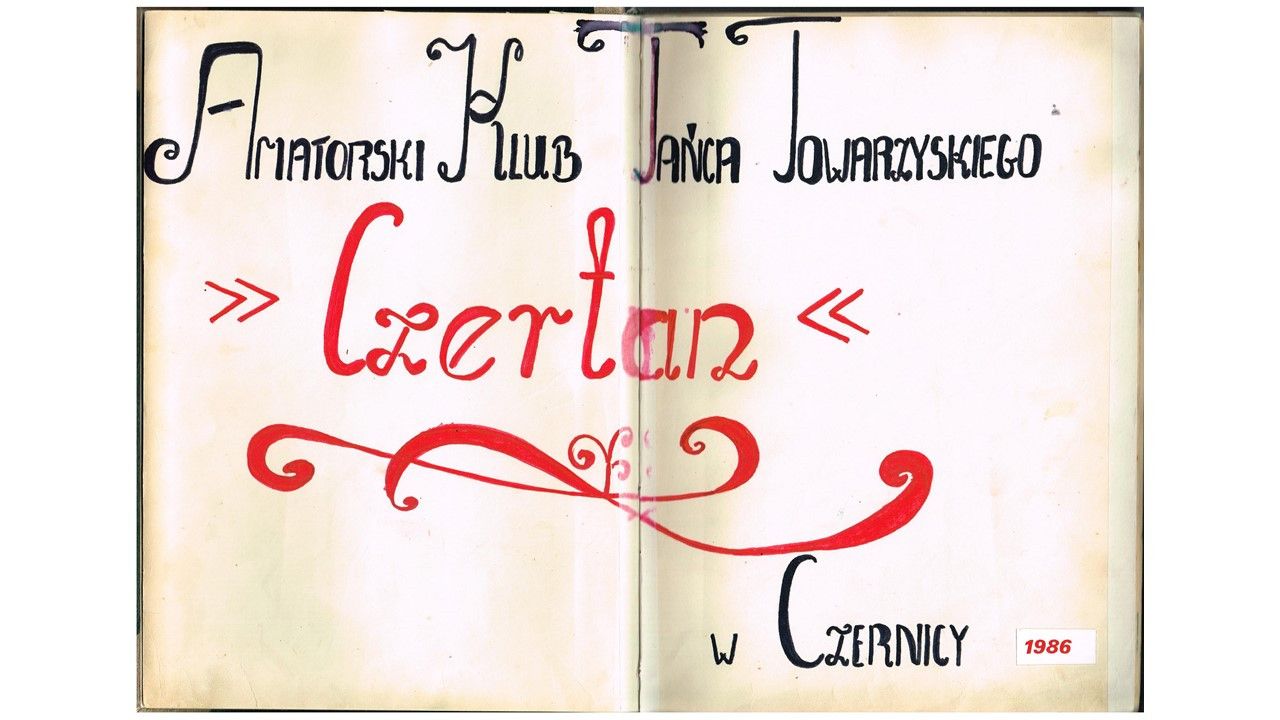 Amatorski Klub Tańca Towarzyskiego
» Czertan «
w Czernicy
1986